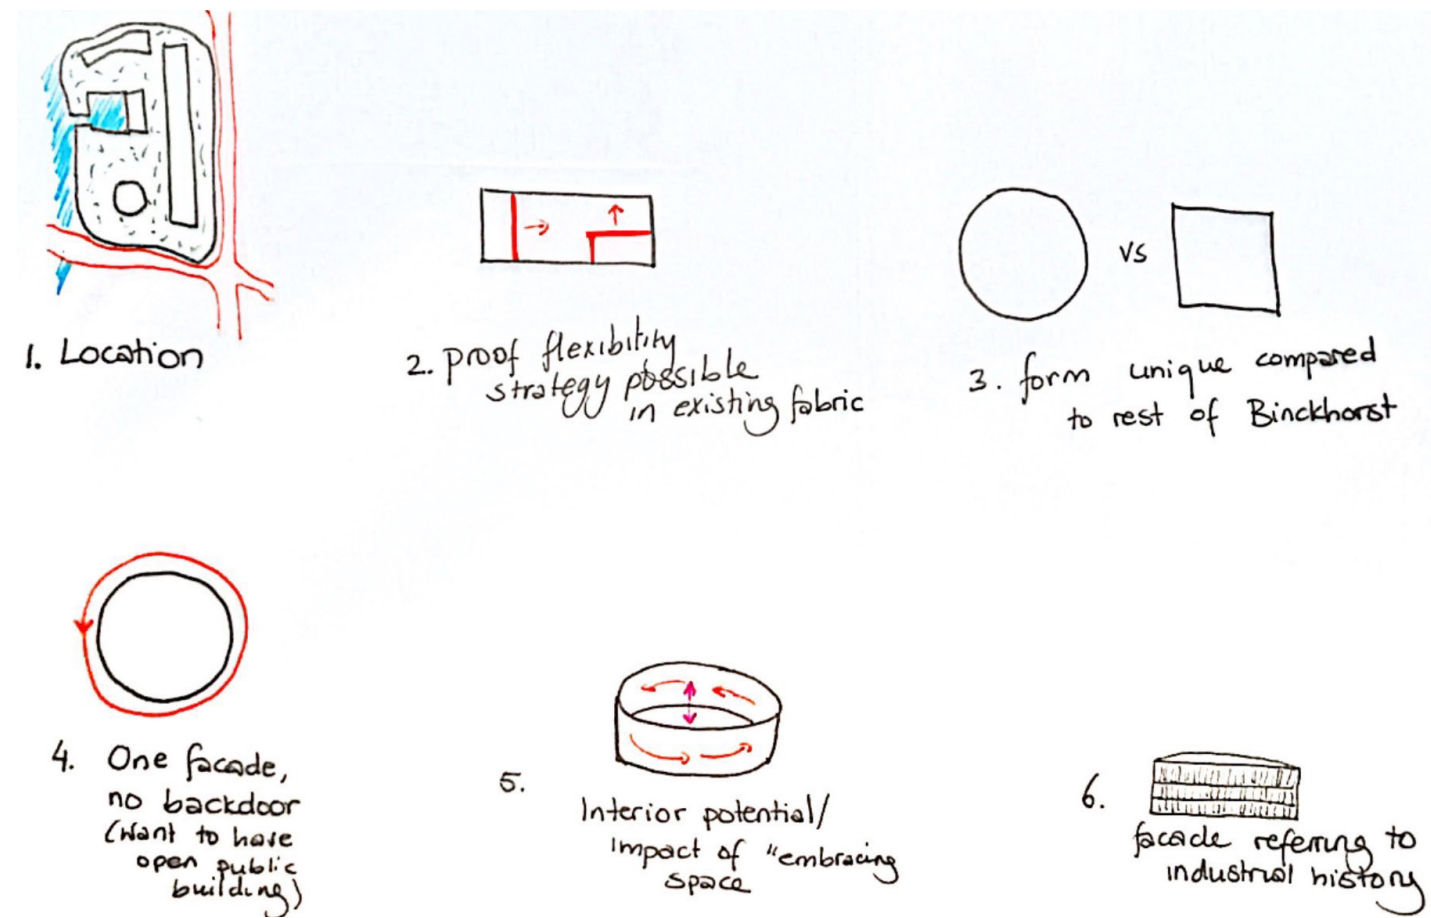 1. Location
2. proof flexibility
strategy possible
in existing fabric
vs
3. form unique compared
to rest of Binckhorst
4. One facade,
no backdoor
(Want to have
open public
building)
5.
Interior potential/
impact of "embracing
space
6.
facade referring to
industrial history